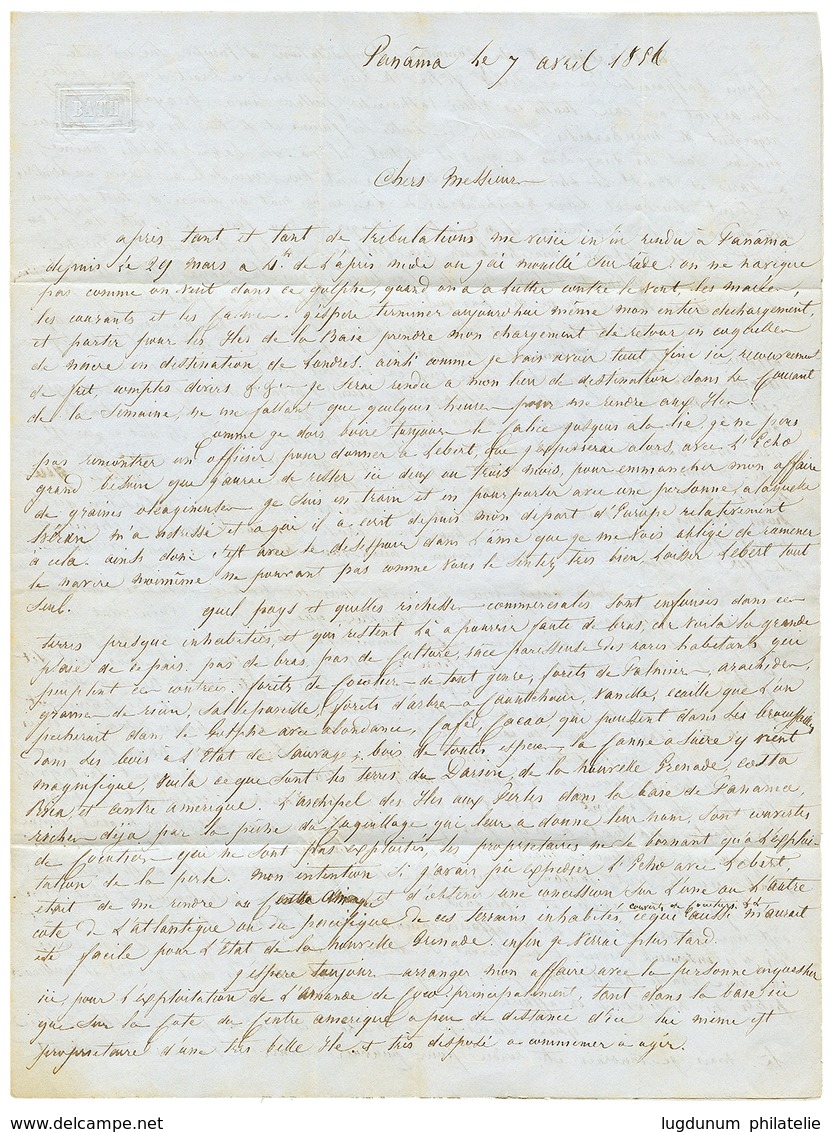 Panáma le 7 avril 1856
BATH
Chers Messieurs
après tant et tant de tribulations me voici enfin rendu à Panáma
depuis le 29 mars a 4 hrs de l'après midi ou j'ai mouillé sur rade. on ne navigue
pas comme on veut dans ce golphe, quand on a a lutter contre le vent, les marées,
les courants et les . j'éspère terminer aujourd'hui même mon entier déchargement,
et partir pour les Iles de la Baie prendre mon chargement de retour en coquilles
de nacre en destination de Londres. ainsi comme je vais avoir tout fini ici, recouvrement
de fret, comptes divers &&a je serai rendu a mon lieu de destination dans le Courant
de la Semaine, ne me fallant que quelques heures pour me rendre aux Iles.
Comme je dois boire toujours le Calice jusques a la lie, je ne puis
pas rencontrer un officier pour donner a Lebert, que j'expédierai alors, avec l'Echo
grand besoin que j'aurai de rester ici deux ou trois mois, pour emmancher mon affaire
de graines oléagineuses je suis en train et en pourparler avec une personne a laquelle
m'a adressé et a qui il a écrit depuis mon départ d'Europe relativement
à cela. ainsi donc c'est avec le désespoir dans l'ame que je me vois obligé de ramener
le navire moimême ne pouvant pas comme vous le sentez très bien laisser Lebert tout
Seul. quel pays et quelles richesses commerciales sont enfouies dans ces
terres presque inhabitées, et qui restent là a pourrir faute de bras, car voila la grande
plaie de ce pais. pas de bras, pas de Culture, race paresseuse des rares habitants qui
peuplent ces contrées. forêts de Cocotiers de tout genre, forêts de Palmiers, arachides,
graines de ricin, Salsepareille, forêts d'arbres a Caoutchouc, Vanille, écaille que l'on
pecherait dans le Golphe avec abondance, Café, Cacao, qui poussent dans les broussailles
dans les bois a l'Etat de Sauvage; bois de toutes espèces, la Canne a Sucre y vient
magnifique, Voila ce que sont les terres du Darien, de la nouvelle Grenade, costa
Rica et centre amérique. L'archipel des Iles aux Perles dans la baie de Panama,
riches deja par la pêche du Coquillage qui leur a donné leur nom, sont couvertes
de Cocotiers qui ne sont pas exploités, les propriétaires ne se bornant qu'a l'exploi-
tation de la perle. mon intention si j'avais pu expédier l'Echo avec Lebert
était de me rendre au Centre Amérique et d'obtenir une concession sur l'une ou l'autre
couverts de Cocotiers &&
cote de l'atlantique ou du pacifique de ces terrains inhabités, ce qui aussi m'aurait
été facile pour l'Etat de la nouvelle Grenade. enfin je verrai plus tard.
j'espère toujours arranger mon affaire avec la personne en question
ici, pour l'exploitation de l'amande de Coco principalement, tant dans la baie ici
que sur la Cote du Centre amérique a peu de distance d'ici lui même est
propriétaire d'une très belle Ile et très disposé a commencer a agir.
delcampe.net
lugdunum philatelie